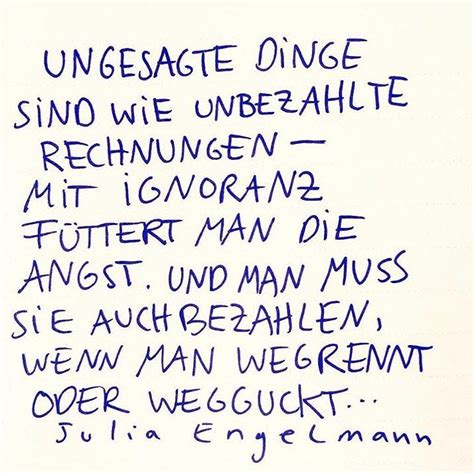 UNGESAGTE DINGE
SIND WIE UNBEZAHLTE
RECHNUNGEN —
MIT IGNORANZ
FÜTTERT MAN DIE
ANGST. UND MAN MUSS
SIE AUCH BEZAHLEN,
WENN MAN WEGRENNT
ODER WEGGUCKT...
Julia Engelmann